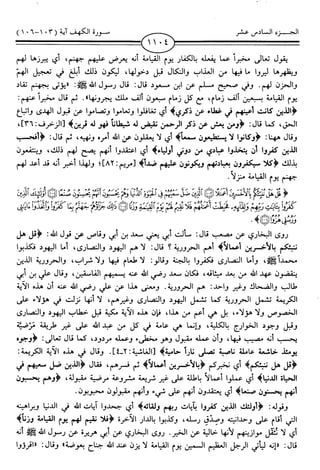 الجزء السادس عشر
سورة الكهف آية (١٠٣-١٠٦)
١١٠٤
يقول تعالى مخبراً عما يفعله بالكفار يوم القيامة أنه يعرض عليهم جهنم، أي يبرزها لهم
ويظهرها ليروا ما فيها من العذاب والنكال قبل دخولها، ليكون ذلك أبلغ في تعجيل الهمّ
والحزن لهم. وفي صحيح مسلم عن ابن مسعود قال: قال رسول الله ﷺ: «يؤتى بجهنم تقاد
يوم القيامة بسبعين ألف زمام، مع كل زمام سبعون ألف ملك يجرونها». ثم قال مخبراً عنهم:
﴿الذين كانت أعينهم في غطاء عن ذكري﴾ أي تغافلوا وتعاموا وتصاموا عن قبول الهدى واتباع
الحق، كما قال: ﴿ومن يعش عن ذكر الرحمن نقيض له شيطاناً فهو له قرين﴾ [الزخرف: ٣٦]،
وقال ههنا: ﴿وكانوا لا يستطيعون سمعاً﴾ أي لا يعقلون عن الله أمره ونهيه، ثم قال: ﴿أفحسب
الذين كفروا أن يتخذوا عبادي من دوني أولياء﴾ أي اعتقدوا أنهم يصح لهم ذلك، وينتفعون
بذلك ﴿كلا سيكفرون بعبادتهم ويكونون عليهم ضداً﴾ [مريم: ٨٢]؛ ولهذا أخبر أنه قد أعد لهم
جهنم يوم القيامة منزلاً.
﴿قُلْ هَلْ نُنَبِّئُكُم بِالْأَخْسَرِينَ أَعْمَالًا ۝ الَّذِينَ ضَلَّ سَعْيُهُمْ فِي الْحَيَاةِ الدُّنْيَا وَهُمْ يَحْسَبُونَ أَنَّهُمْ يُحْسِنُونَ صُنْعًا ۝ أُولَٰئِكَ الَّذِينَ
كَفَرُوا بِآيَاتِ رَبِّهِمْ وَلِقَائِهِ فَحَبِطَتْ أَعْمَالُهُمْ فَلَا نُقِيمُ لَهُمْ يَوْمَ الْقِيَامَةِ وَزْنًا ۝ ذَٰلِكَ جَزَاؤُهُمْ جَهَنَّمُ بِمَا كَفَرُوا وَاتَّخَذُوا آيَاتِي
وَرُسُلِي هُزُوًا ۝﴾.
روى البخاري عن مصعب قال: سألت أبي يعني سعد بن أبي وقاص عن قول الله: ﴿قل هل
ننبئكم بالأخسرين أعمالاً﴾ أهم الحرورية؟ قال: لا هم اليهود والنصارى، أما اليهود فكذبوا
محمداً ﷺ، وأما النصارى فكفروا بالجنة وقالوا: لا طعام فيها ولا شراب، والحرورية الذين
ينقضون عهد الله من بعد ميثاقه، فكان سعد رضي الله عنه يسميهم الفاسقين، وقال علي بن أبي
طالب والضحاك وغير واحد: هم الحرورية. ومعنى هذا عن علي رضي الله عنه أن هذه الآية
الكريمة تشمل الحرورية كما تشمل اليهود والنصارى وغيرهم، لا أنها نزلت في هؤلاء على
الخصوص ولا هؤلاء، بل هي أعم من هذا، فإن هذه الآية مكية قبل خطاب اليهود والنصارى
وقبل وجود الخوارج بالكلية، وإنما هي عامة في كل من عبد الله على غير طريقة مَرْضيَّة
يحسب أنه مصيب فيها، وأن عمله مقبول وهو مخطىء وعمله مردود، كما قال تعالى: ﴿وجوه
يومئذ خاشعة عاملة ناصبة تصلى ناراً حامية﴾ [الغاشية: ٢-٤]. وقال في هذه الآية الكريمة:
﴿قل هل ننبئكم﴾ أي نخبركم ﴿بالأخسرين أعمالاً﴾ ثم فسرهم، فقال: ﴿الذين ضل سعيهم في
الحياة الدنيا﴾ أي عملوا أعمالاً باطلة على غير شريعة مشروعة مرضية مقبولة، ﴿وهم يحسبون
أنهم يحسنون صنعاً﴾ أي يعتقدون أنهم على شيء وأنهم مقبولون محبوبون.
وقوله: ﴿أولئك الذين كفروا بآيات ربهم ولقائه﴾ أي جحدوا آيات الله في الدنيا وبراهينه
التي أقام على وحدانيته وصِدْق رسله، وكذبوا بالدار الآخرة ﴿فلا نقيم لهم يوم القيامة وزناً﴾
أي لا نُثَقّل موازينهم لأنها خالية عن الخير. روى البخاري عن أبي هريرة عن رسول الله ﷺ أنه
قال: «إنه ليأتي الرجل العظيم السمين يوم القيامة لا يزن عند الله جناح بعوضة» وقال: «اقرؤوا